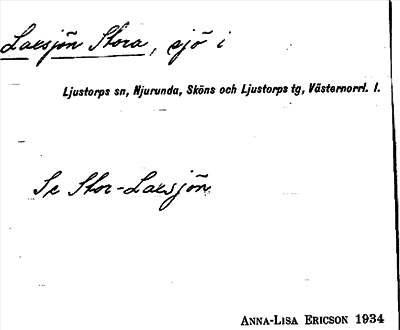 Laxsjön Stora, sjö i
Ljustorps sn, Njurunda, Sköns och Ljustorps tg, Västernorrl. l.
Se Stor-Laxsjön
ANNA-LISA ERICSON 1934